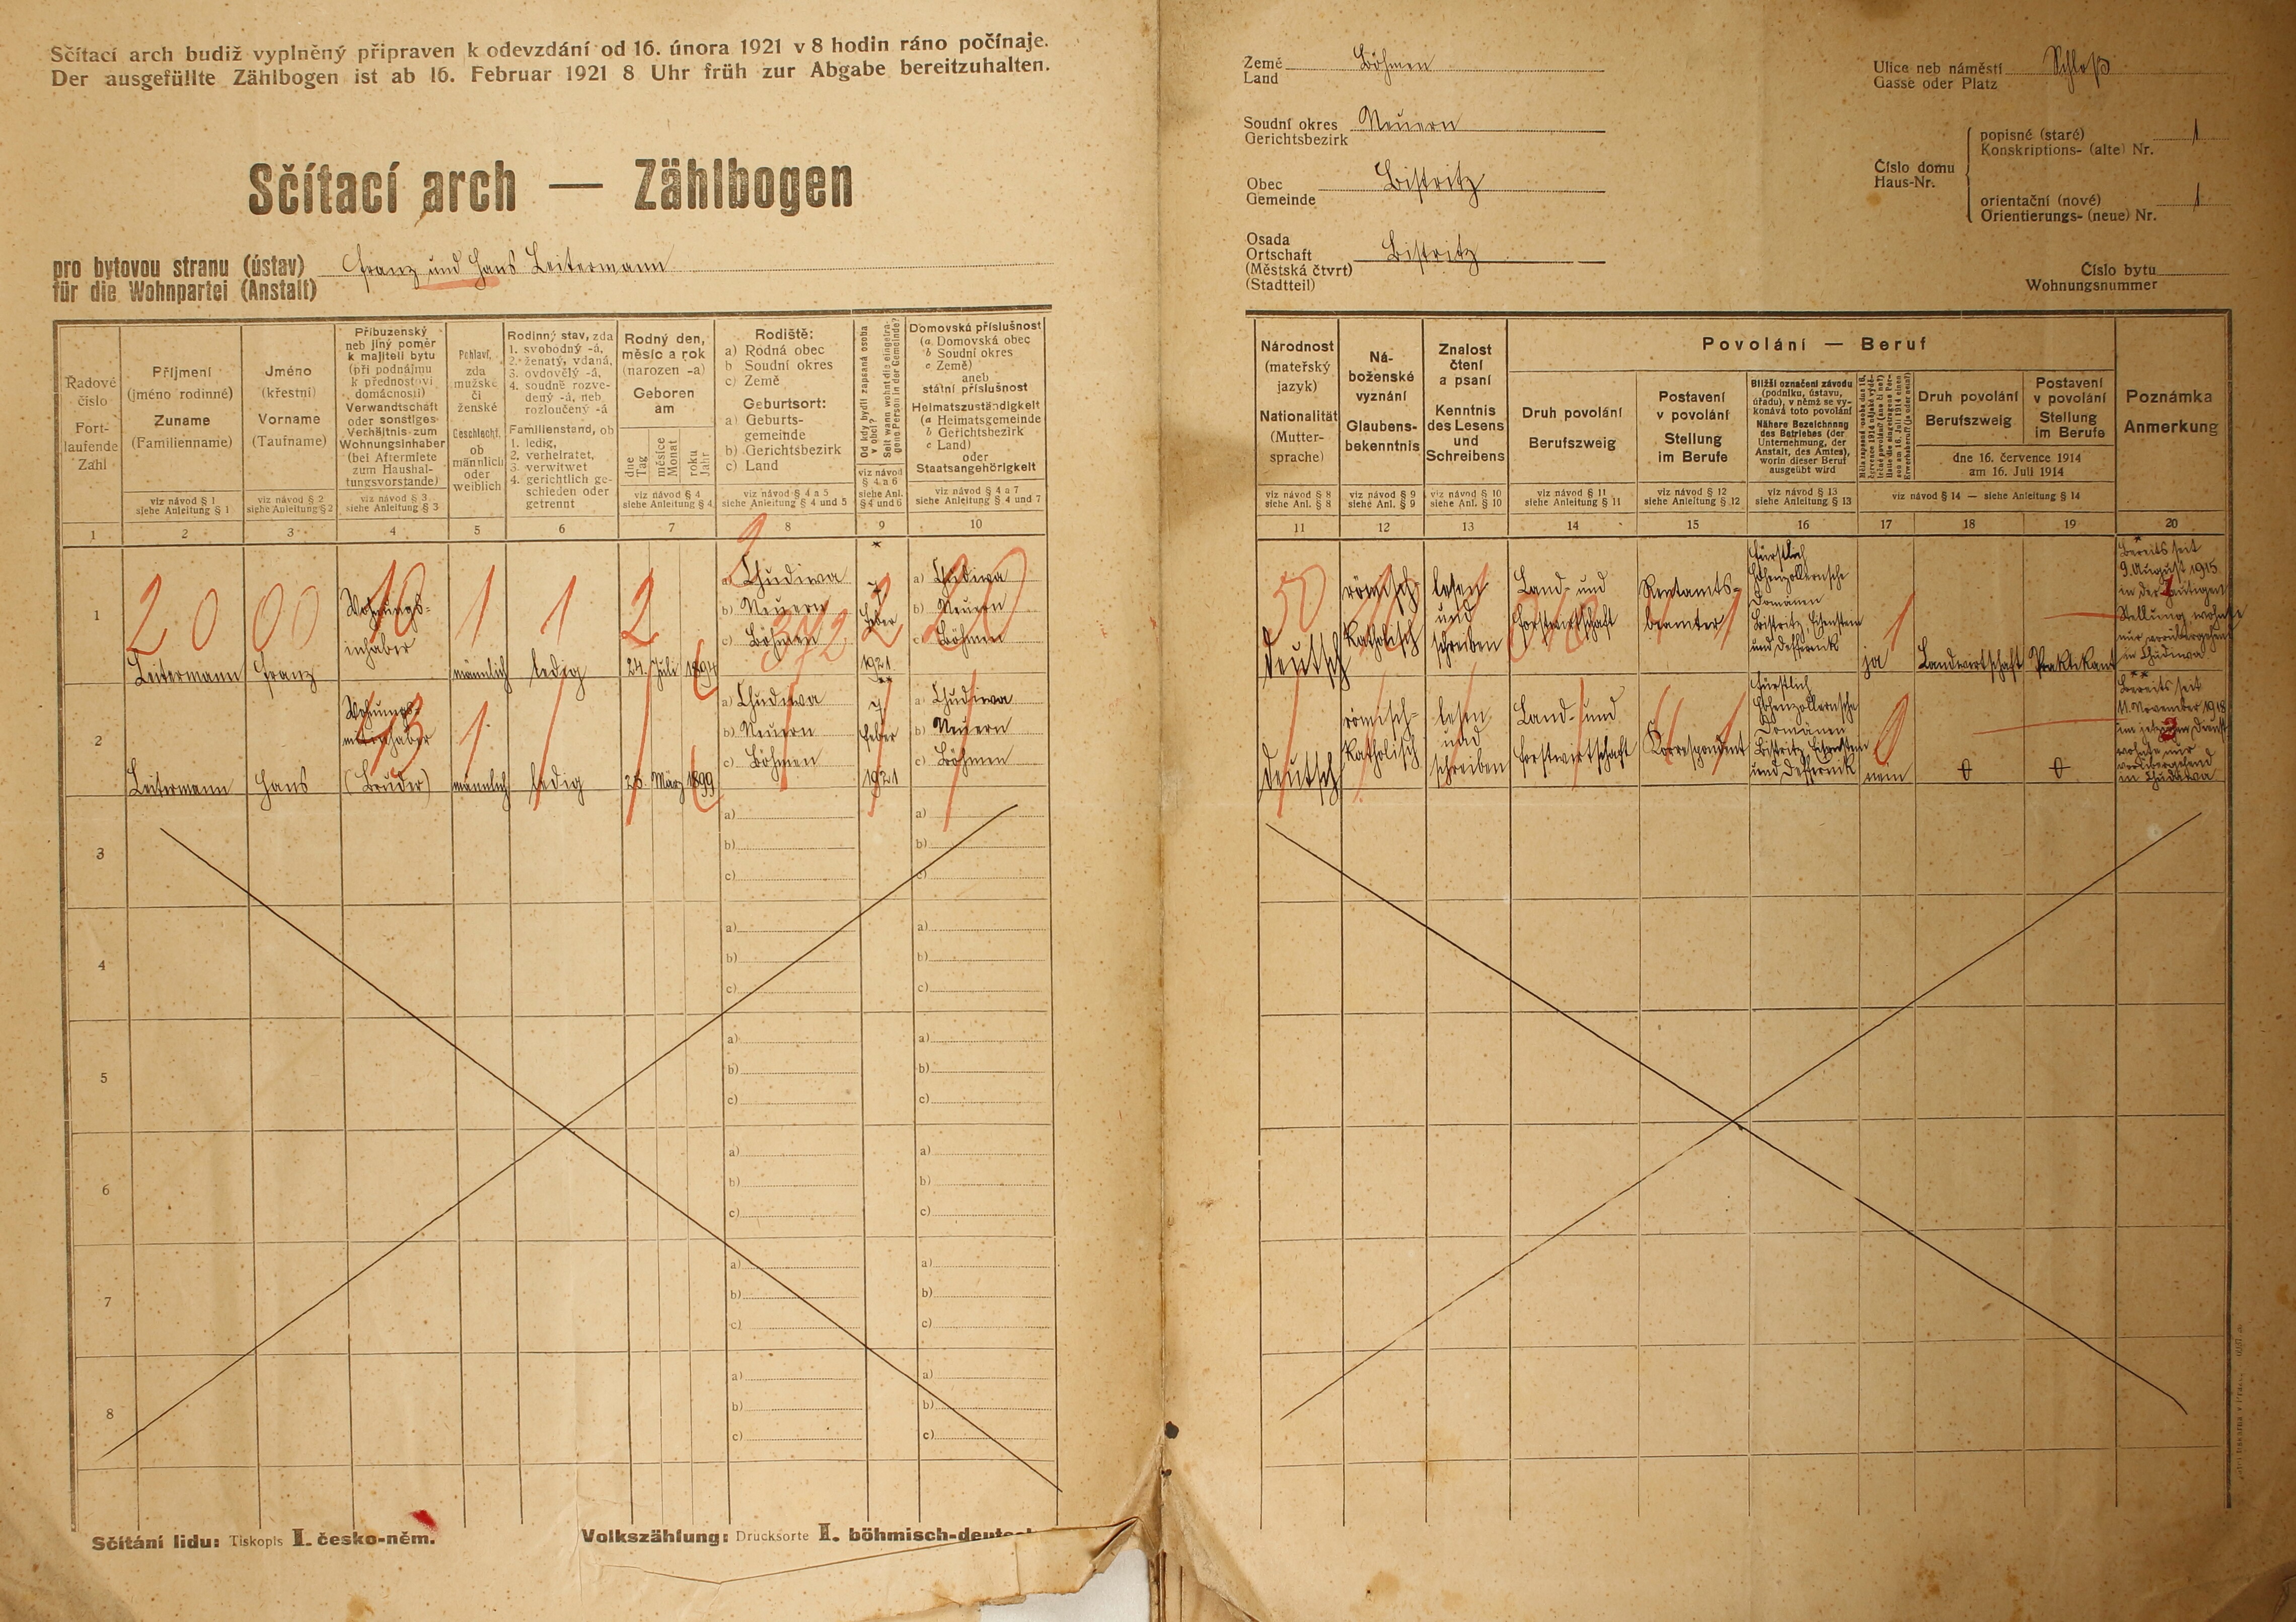 Sčítací arch budiž vyplněný připraven k odevzdání od 16. února 1921 v 8 hodin ráno počínaje.
Der ausgefüllte Zählbogen ist ab 16. Februar 1921 8 Uhr früh zur Abgabe bereitzuhalten.
Sčítací arch — Zählbogen
pro bytovou stranu (ústav)
für die Wohnpartei (Anstalt)
Franz und Hans Leitermann
Země
Land
Böhmen
Soudní okres
Gerichtsbezirk
Neuern
Obec
Gemeinde
Bistritz
Osada
Ortschaft
(Městská čtvrt)
(Stadtteil)
Bistritz
Ulice neb náměstí
Gasse oder Platz
Schloß
Číslo domu
Haus-Nr.
popisné (staré)
Konskriptions- (alte) Nr.
1
orientační (nové)
Orientierungs- (neue) Nr.
1
Číslo bytu
Wohnungsnummer
Řadové
číslo
Fort-
laufende
Zahl
1
Příjmení
(jméno rodinné)
Zuname
(Familienname)
viz návod § 1
siehe Anleitung § 1
2
Jméno
(křestní)
Vorname
(Taufname)
viz návod § 2
siehe Anleitung § 2
3
Příbuzenský
neb jiný poměr
k majiteli bytu
(při podnájmu
k přednostovi
domácnosti)
Verwandtschaft
oder sonstiges
Verhältnis zum
Wohnungsinhaber
(bei Aftermiete
zum Haushal-
tungsvorstande)
viz návod § 3
siehe Anleitung § 3
4
Pohlaví,
zda
mužské
či
ženské
Geschlecht,
ob
männlich
oder
weiblich
5
Rodinný stav, zda
1. svobodný -á,
2. ženatý, vdaná,
3. ovdovělý -á,
4. soudně rozve-
dený -á, neb
rozloučený -á
Familienstand, ob
1. ledig,
2. verheiratet,
3. verwitwet
4. gerichtlich ge-
schieden oder
getrennt
6
Rodný den,
měsíc a rok
(narozen -a)
Geboren
am
dne
Tag
měsíce
Monat
roku
Jahr
viz návod § 4
siehe Anleitung § 4
7
Rodiště:
a) Rodná obec
b) Soudní okres
c) Země
Geburtsort:
a) Geburts-
gemeinde
b) Gerichtsbezirk
c) Land
viz návod § 4 a 5
siehe Anleitung § 4 und 5
8
Od kdy bydlí zapsaná osoba
v obci?
Seit wann wohnt die eingetra-
gene Person in der Gemeinde?
viz návod
§ 4 a 6
siehe Anl.
§ 4 und 6
9
Domovská příslušnost
(a Domovská obec
b Soudní okres
c Země)
aneb
státní příslušnost
Heimatszuständigkeit
(a Heimatsgemeinde
b Gerichtsbezirk
c Land)
oder
Staatsangehörigkeit
viz návod § 4 a 7
siehe Anleitung § 4 und 7
10
Národnost
(mateřský
jazyk)
Nationalität
(Mutter-
sprache)
viz návod § 8
siehe Anl. § 8
11
Ná-
boženské
vyznání
Glaubens-
bekenntnis
viz návod § 9
siehe Anl. § 9
12
Znalost
čtení
a psaní
Kenntnis
des Lesens
und
Schreibens
viz návod § 10
siehe Anl. § 10
13
Povolání — Beruf
Druh povolání
Berufszweig
viz návod § 11
siehe Anleitung § 11
14
Postavení
v povolání
Stellung
im Berufe
viz návod § 12
siehe Anleitung § 12
15
Bližší označení závodu
(podniku, ústavu,
úřadu), v němž se vy-
konává toto povolání
Nähere Bezeichnung
des Betriebes (der
Unternehmung, der
Anstalt, des Amtes),
worin dieser Beruf
ausgeübt wird
viz návod § 13
siehe Anleitung § 13
16
17
Druh povolání
Berufszweig
18
Postavení
v povolání
Stellung
im Berufe
19
dne 16. července 1914
am 16. Juli 1914
viz návod § 14 — siehe Anleitung § 14
Poznámka
Anmerkung
20
1
Leitermann
Franz
Wohnungs-
inhaber
männlich
ledig
24. Juli 1894
a) Chudiwa
b) Neuern
c) Böhmen
*
7
Feber
1921
a) Chudiwa
b) Neuern
c) Böhmen
deutsch
römisch-
katholisch
lesen
und
schreiben
Land- und
Forstwirtschaft
Rentamts-
beamter
Fürstlich
Hohenzollernsche
Domänen
Bistritz Eisenstein
und Deffernik
ja
Landwirtschaft
Praktikant
*
Bereits seit
9. August 1915
in der
Stellung, wohnte
nur vorübergehend
in Chudiwa
2
Leitermann
Hans
(Bruder)
männlich
ledig
25. März 1899
a) Chudiwa
b) Neuern
c) Böhmen
**
7
Feber
1921
a) Chudiwa
b) Neuern
c) Böhmen
deutsch
römisch-
katholisch
lesen
und
schreiben
Land- und
Forstwirtschaft
Korrespondent
Fürstlich
Hohenzollernsche
Domänen
Bistritz Eisenstein
und Deffernik
nein
**
Bereits seit
11. November 1918
wohnte nur
vorübergehend
in Chudiwa
3
a)
b)
c)
4
a)
b)
c)
5
a)
b)
c)
6
a)
b)
c)
7
a)
b)
c)
8
a)
b)
c)
Sčítání lidu: Tiskopis I. česko-něm.
Volkszählung: Drucksorte I. böhmisch-deutsch